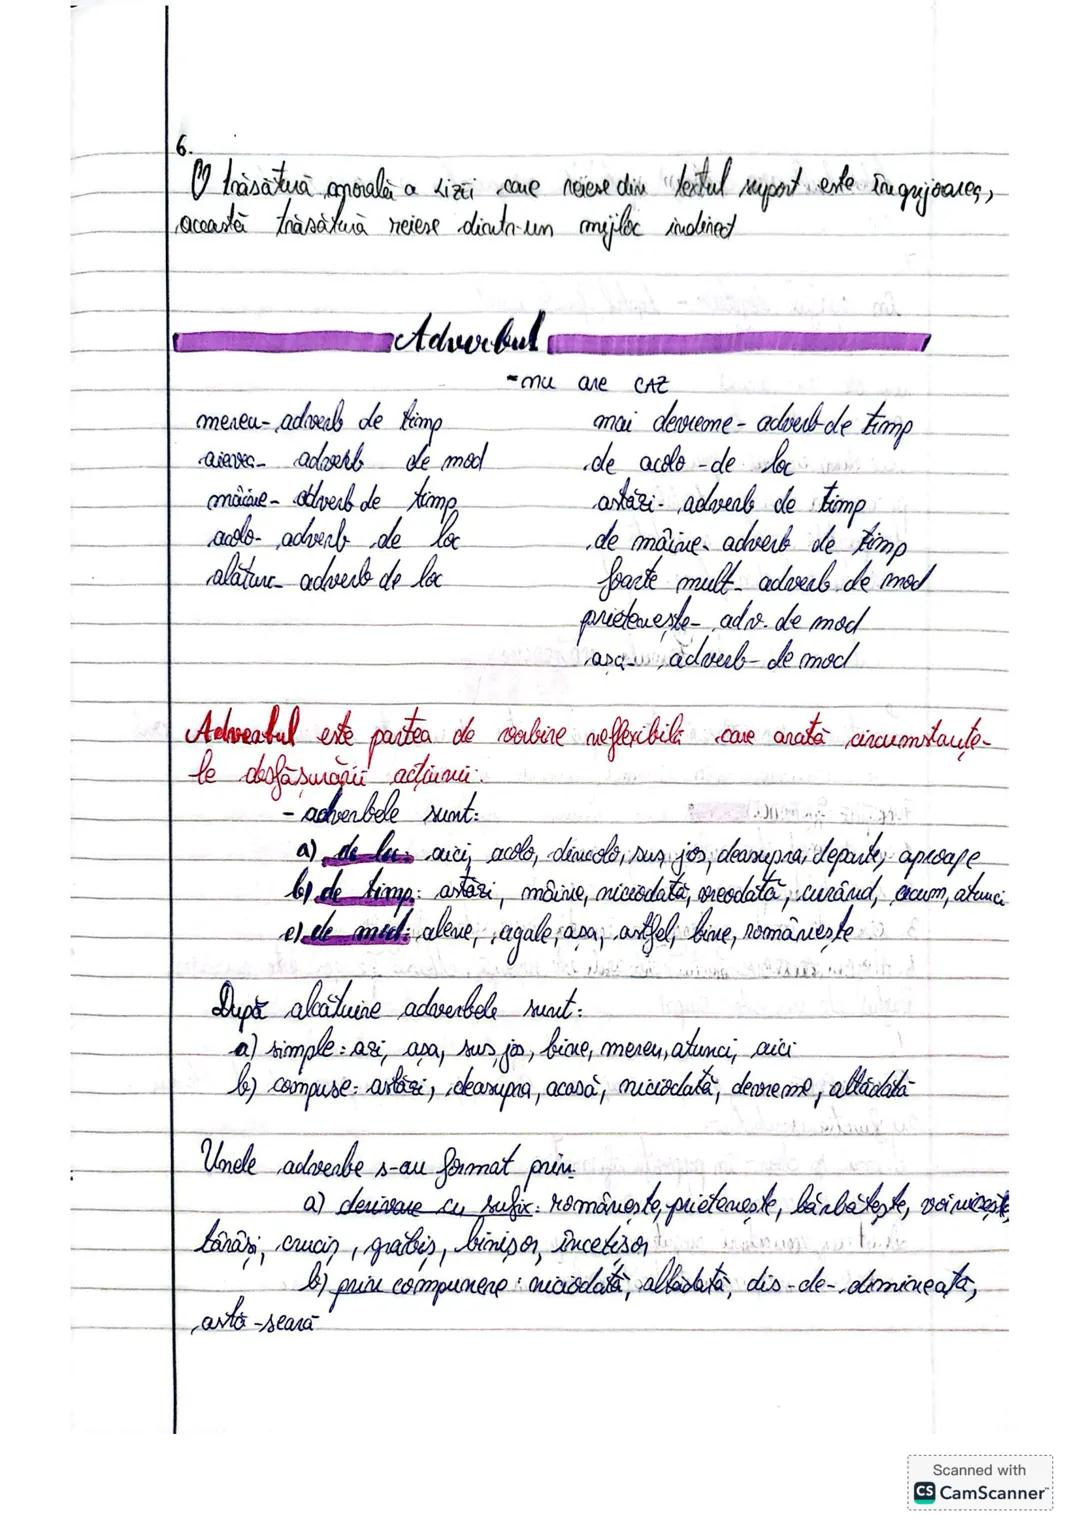 6.
O trăsătură morală a Lizei care reiese din textul suport este îngrijoarea,
această trăsătură reiese dintr-un mijloc indirect
Adverbul
-nu are CAZ
mereu- adverb de timp
aievea- adverb de mod
mâine- adverb de timp
acolo- adverb de loc
alături- adverb de loc
mai devreme- adverb de timp
de acolo -de loc
astăzi- adverb de timp
de mâine- adverb de timp
foarte mult- adverb de mod
prietenește- adv. de mod
așa- adverb- de mod
Adverbul este partea de vorbire neflexibilă care arată circumstanțe-
le desfășurării acțiunii.
- adverbele sunt:
a) de loc: aici, acolo, dincolo, sus, jos, deasupra, departe, aproape
b) de timp: astăzi, mâine, niciodată, vreodată, curând, acum, atunci
c) de mod: alene, agale, așa, astfel, bine, românește
După alcătuire adverbele sunt:
a) simple: azi, așa, sus, jos, bine, mereu, atunci, aici
b) compuse: astăzi, deasupra, acasă, niciodată, devreme, altădată
Unele adverbe s-au format prin:
a) derivare cu sufix: românește, prietenește, bărbătește, voinicește,
târâși, cruciș, grăbiș, binișor, încetișor
b) prin compunere: niciodată, altădată, dis-de-dimineață,
astă-seară
Scanned with
CS CamScanner